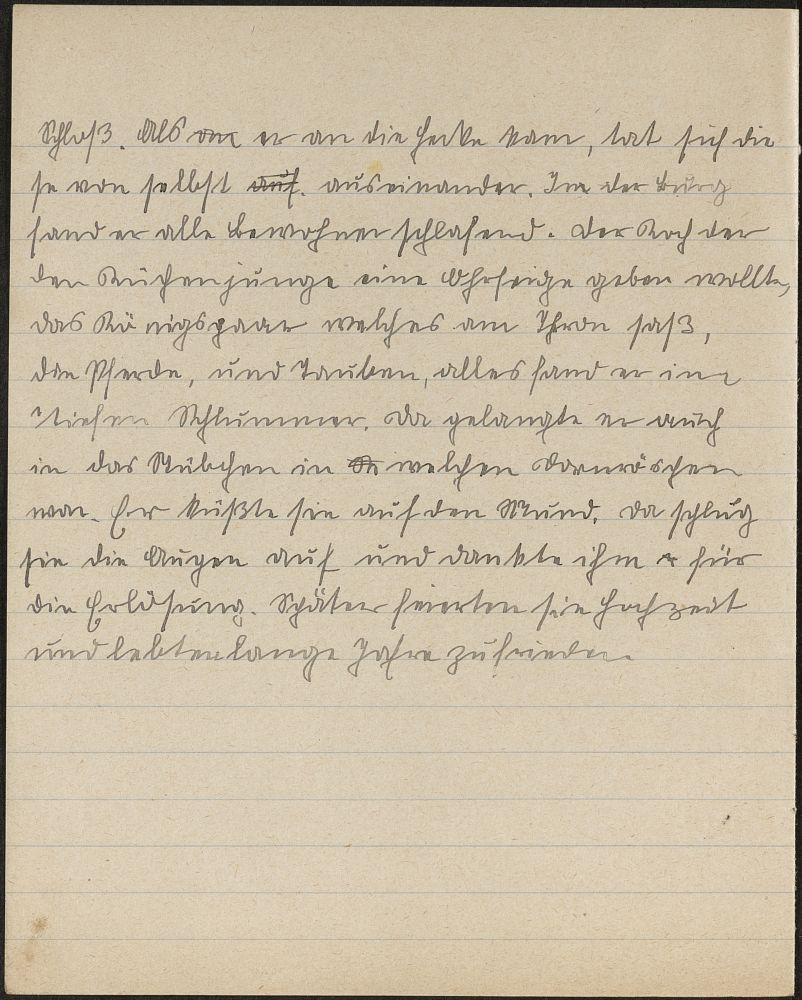 Schloß. Als er an die Hecke kam, tat sich die
se von selbst auf. auseinander. In der Burg
fand er alle Bewohner schlafend. Der Koch der
den Küchenjunge eine Ohrfeige geben wollte,
das Königspaar welches am Thron saß,
die Pferde, und Tauben, alles fand er im
tiefen Schlummer. Da gelangte er auch
in das Stübchen in welchen Dornröschen
war. Er küßte sie auf den Mund. Da schlug
sie die Augen auf und dankte ihm für
die Erlösung. Später feierten sie Hochzeit
und lebten lange Jahre zufrieden.